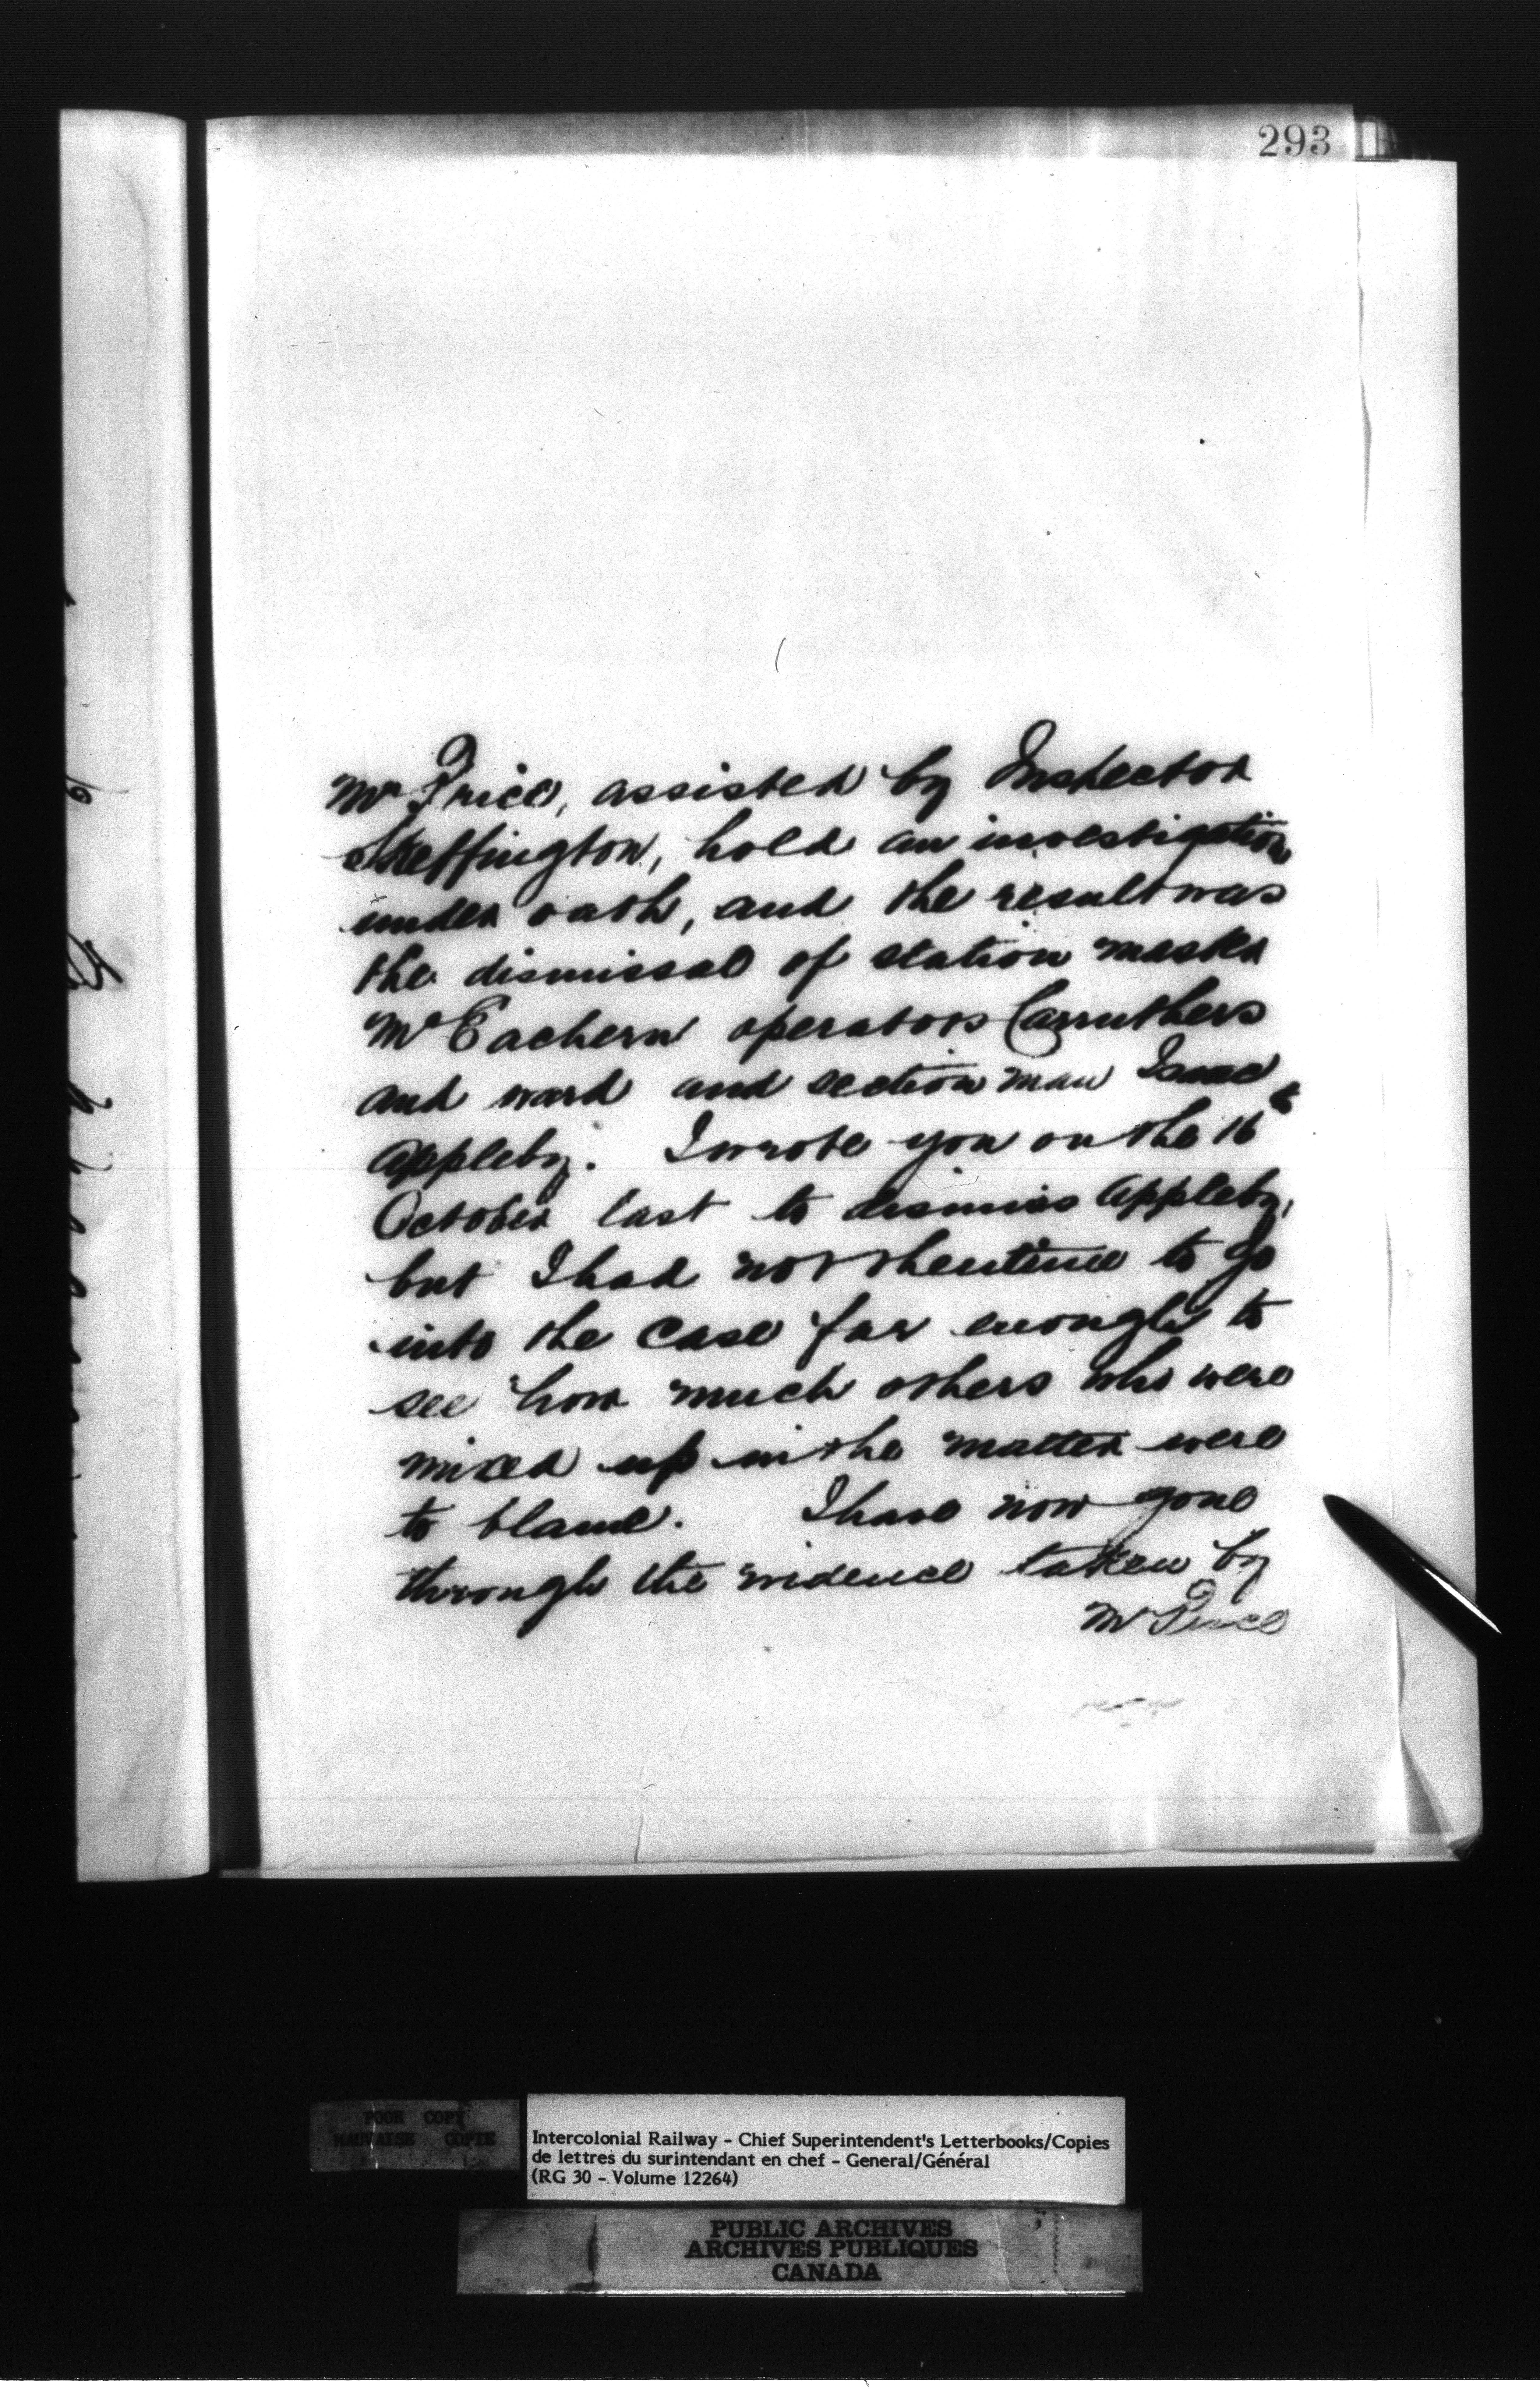 293
Mr Price, assisted by Inspector
Skeffington, held an investigation
under oath, and the result was
the dismissal of station master
McEachern operators Carruthers
and Ward and section man Isaac
Appleby. I wrote you on the 16th
October last to dismiss Appleby,
but I had not then time to go
into the case far enough to
see how much others who were
mixed up in the matter were
to blame. I have now gone
through the evidence taken by
Mr Price
POOR COPY
MAUVAISE COPIE
Intercolonial Railway - Chief Superintendent's Letterbooks/Copies
de lettres du surintendant en chef - General/Général
(RG 30 - Volume 12264)
PUBLIC ARCHIVES
ARCHIVES PUBLIQUES
CANADA